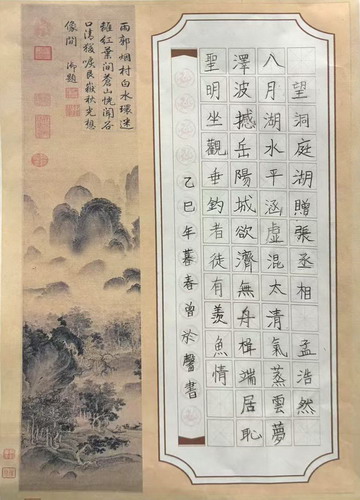 望洞庭湖贈張丞相 孟浩然
八月湖水平涵虛混太清氣蒸雲夢
澤波撼岳陽城欲濟無舟楫端居恥
聖明坐觀垂釣者徒有羨魚情
乙巳年暮春曾於馨書
雨郭烟村白水環迷
離紅葉間蒼山恍聞谷
口清猿唳艮嶽秋光想
像間 御題